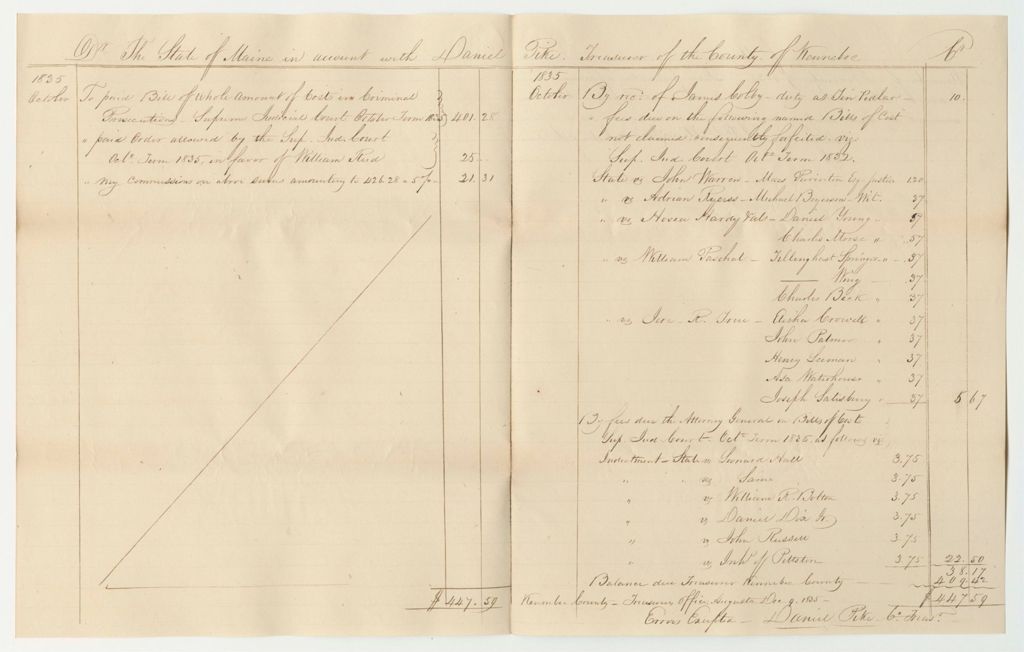 Dr. The State of Maine in account with Daniel Pike Treasurer of the County of Kennebec Cr
1835
October To paid Bill of whole amount of Cost in Criminal
Prosecutions Supreme Judicial Court October Term 1835 401. 28
" paid Order allowed by the Sup. Jud. Court
Octr. Term 1835, in favor of William Reid 25 -
" my Commissions on above sums amounting to 426.28 a 5 p 21. 31
$ 447. 59
1835
October By rec. of James Colby - duty as Tin Pedlar - 10.
" fees due on the following named Bills of Cost
not claimed consequently forfeited. viz
Sup. Jud. Court Oct. Term 1832
State vs John Warren - by Justice 1 20
" vs Adrian Ryerss - Michael - Wit. 37
" vs Hosea Hardy &al - Daniel Young - 37
Charles Morse " 37
" vs William Paschal - Tillinghast Springer " - 37
—— Wing - 37
Charles Beck " 37
" vs R. True - Elisha Crowell " 37
John Palmer " 37
Henry Seeman " 37
Asa Waterhouse " 37
Joseph Salisbury " 37 5 67
By fees due the Attorney General in Bills of Cost
Sup. Jud. Court Octr. Term 1835 as follows viz
Indictment - State vs Leonard Hall 3.75
" " vs Same 3.75
" vs William R. Bolton 3.75
" vs Daniel Dix Jr. 3.75
" vs John Russell 3.75
" vs Inhts. of Pittston 3.75 22. 50
38. 17
Balance due Treasurer Kennebec County 409. 42
$ 447 59
Kennebec County - Treasurers Office, Augusta Dec. 9. 1835 -
Errors Excepted - Daniel Pike Co. Treasr.